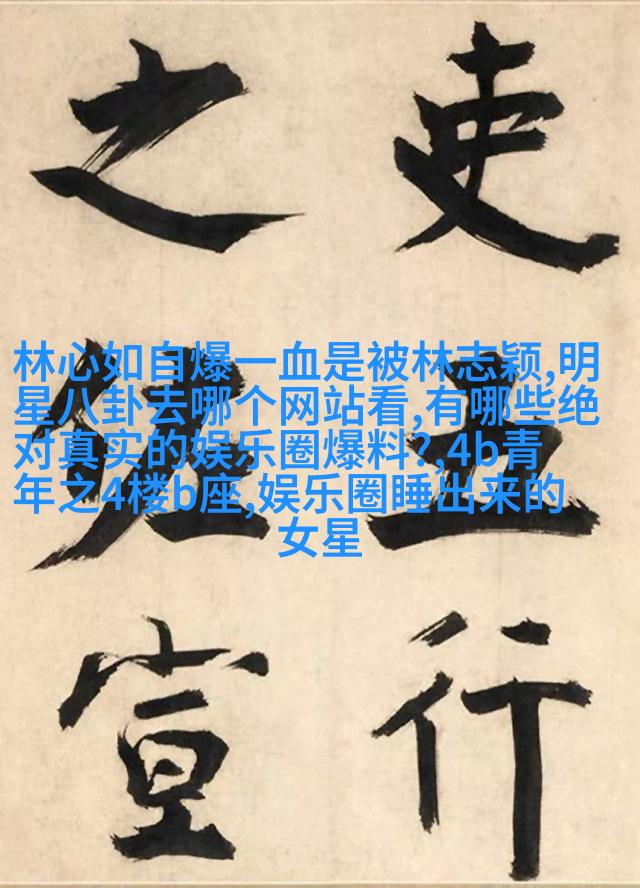 吏五行
之
宣
林心如自爆一血是被林志颖,明
星八卦去哪个网站看,有哪些绝
对真实的娱乐圈爆料?,4b青
年之4楼b座,娱乐圈睡出来的
女星